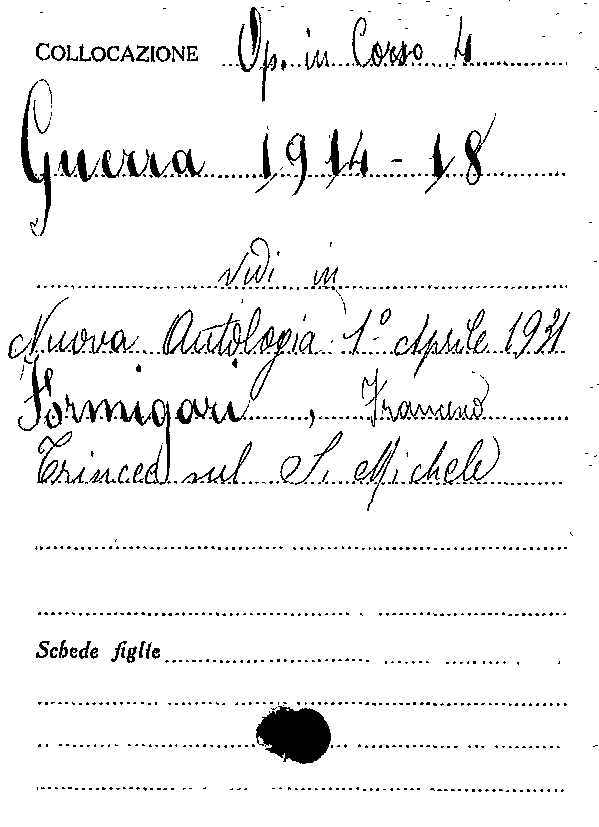 COLLOCAZIONE Op. in Corso 4
Guerra 1914-18
vidi in
Nuova Antologia 1º Aprile 1931
Formigari, Francesco
Trincea sul S. Michele
Schede figlie